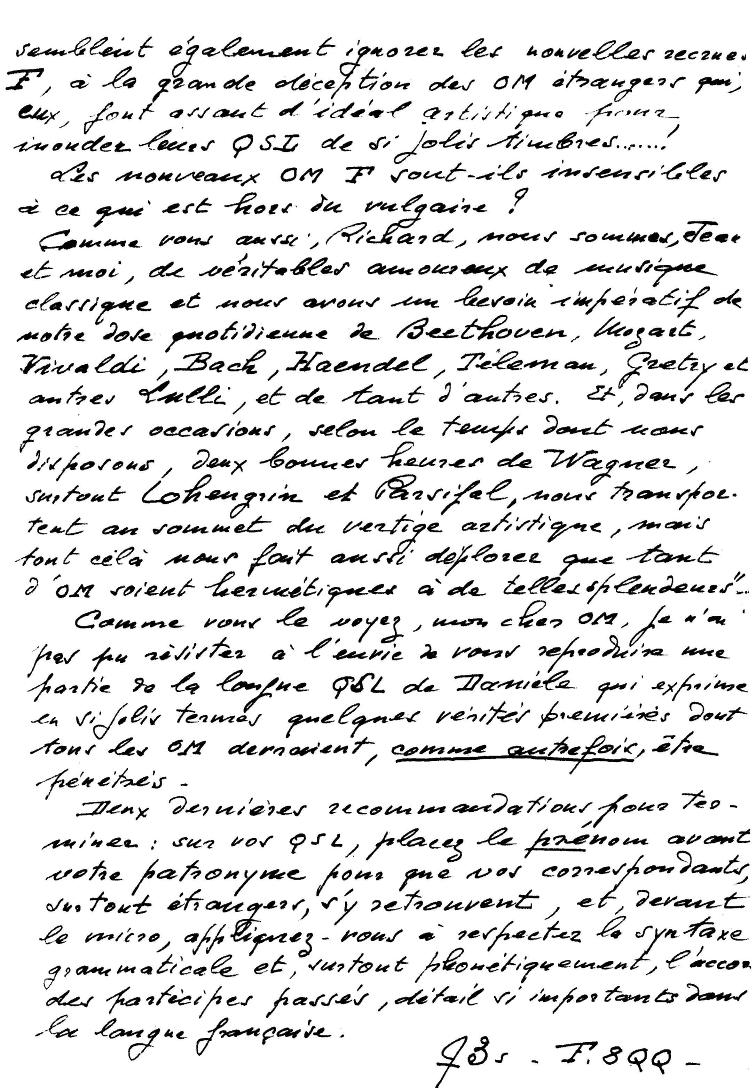 semblent également ignorer les nouvelles recrues
F, à la grande déception des OM étrangers qui,
eux, font assaut d'idéal artistique pour
inonder leurs QSL de si jolis timbres......!
Les nouveaux OM F sont-ils insensibles
à ce qui est hors du vulgaire ?
Comme vous aussi, Richard, nous sommes, Jean
et moi, de véritables amoureux de musique
classique et nous avons un besoin impératif de
notre dose quotidienne de Beethoven, Mozart,
Vivaldi, Bach, Haendel, Téleman, Gretry et
autres Lulli, et de tant d'autres. Et, dans les
grandes occasions, selon le temps dont nous
disposons, deux bonnes heures de Wagner,
surtout Lohengrin et Parsifal, nous transpor-
tent au sommet du vertige artistique, mais
tout celà nous fait aussi déplorer que tant
d'OM soient hermétiques à de telles splendeurs"..
Comme vous le voyez, mon cher OM, je n'ai
pas pu résister à l'envie de vous reproduire une
partie de la longue QSL de Danièle qui exprime
en si jolis termes quelques vérités premières dont
tous les OM devraient, comme autrefois, être
pénétrés -
Deux dernières recommandations pour ter-
miner : sur vos QSL, placez le prénom avant
votre patronyme pour que vos correspondants,
surtout étrangers, s'y retrouvent, et, devant
le micro, appliquez-vous à respecter la syntaxe
grammaticale et, surtout phonétiquement, l'accor
des participes passés, détail si important dans
la langue française.
73s - F.8QQ -